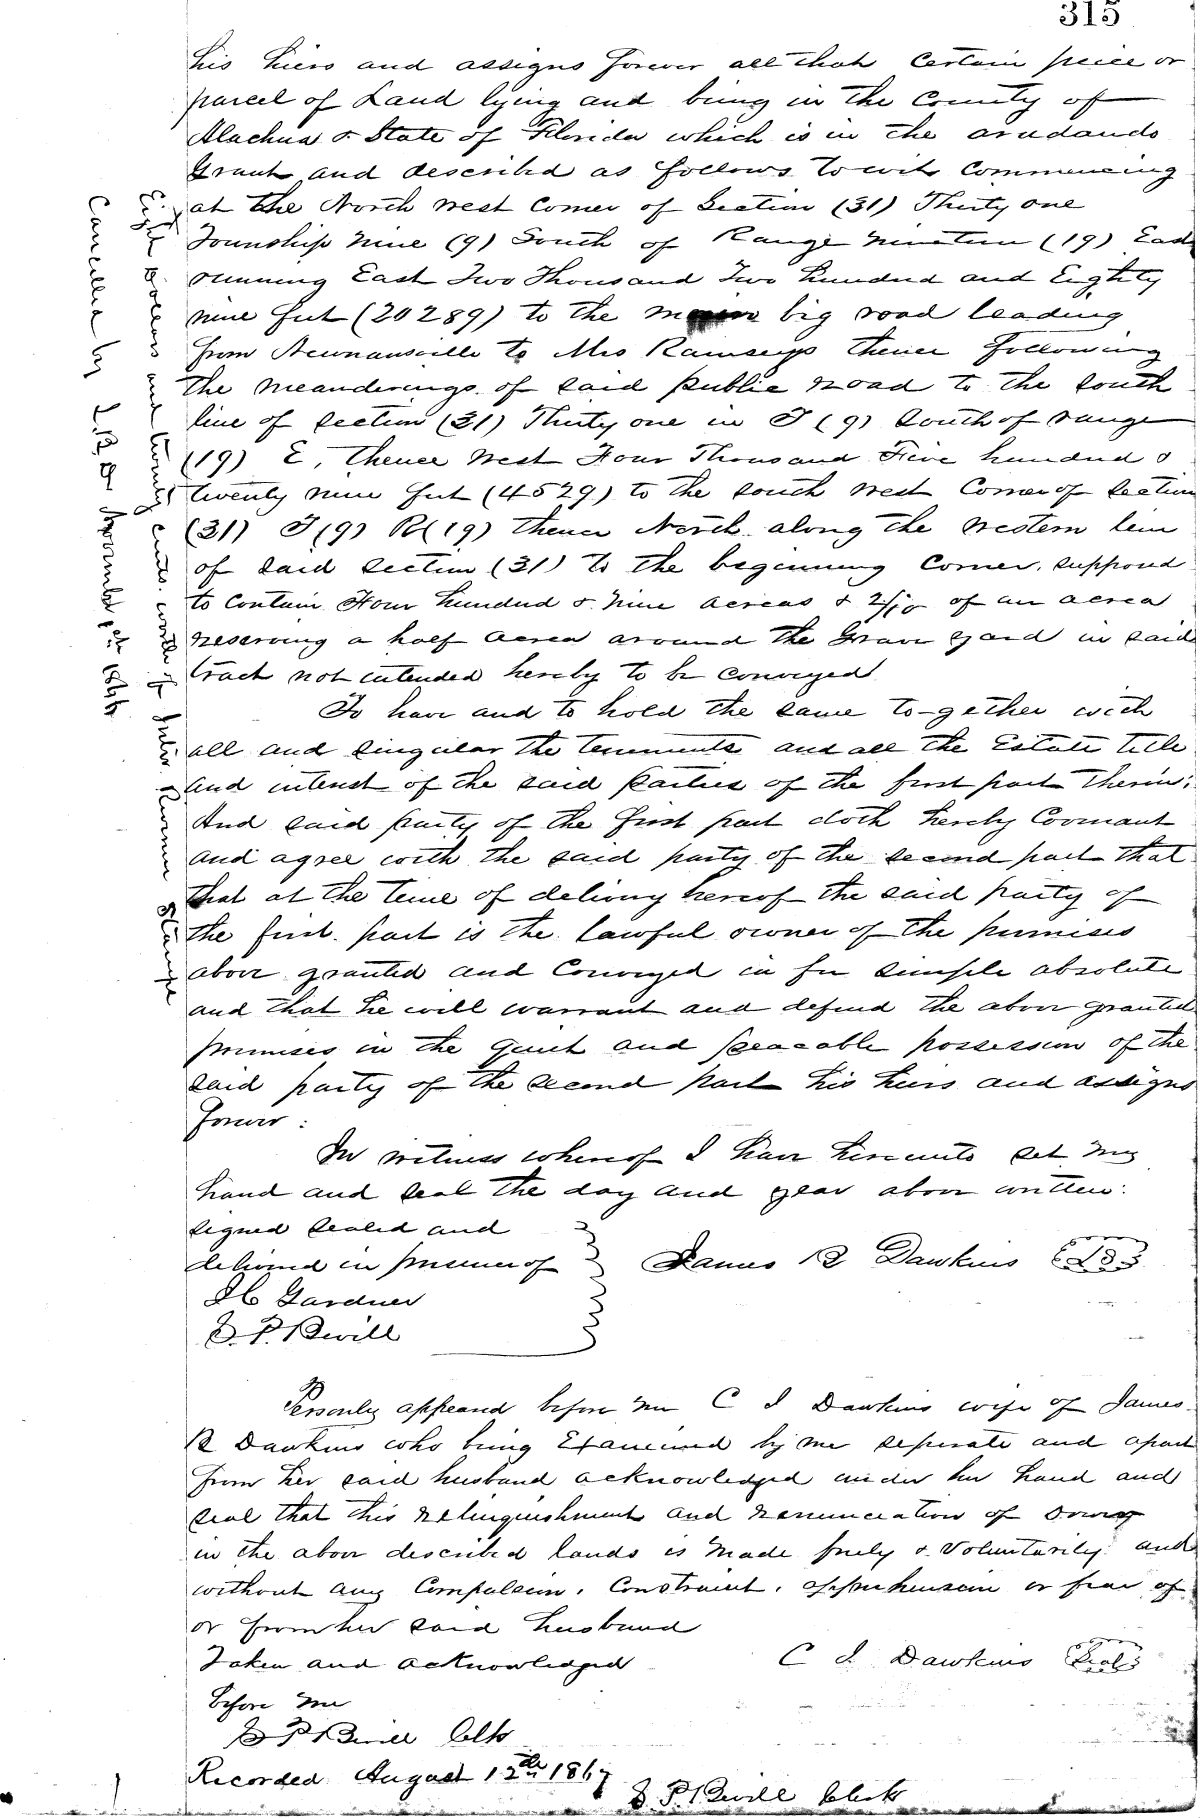 315
his hiers and assigns forever all that certain peice or
parcel of Land lying and being in the County of
Alachua & State of Florida which is in the aredondo
Grant and described as follows to wit Commencing
at the North west Corner of Section (31) Thirty one
Township nine (9) South of Range nineteen (19) East
running East Two Thousand Two hundred and Eighty
nine feet (20289) to the main big road leading
from Newnansville to Mrs Ramseys thence following
the meanderings of said public road to the south
line of section (31) Thirty one in T (9) South of range
(19) E, thence west Four Thousand Five hundred &
twenty nine feet (4529) to the south west Corner of Section
(31) T (9) R (19) thence North along the western line
of said section (31) to the beginning Corner, supposed
to contain Four hundred & nine acreas & 2/10 of an acrea
reserving a half acrea around the Grave yard in said
tract not intended hereby to be conveyed
To have and to hold the same to-gether with
all and singular the tenements and all the Estate title
and interest of the said parties of the first part therin;
And said party of the first part doth hereby Covenant
and agree with the said party of the second part that
that at the time of delivery hereof the said party of
the first part is the lawful owner of the premises
above granted and Conveyed in fee simple absolute
and that he will warrant and defend the above granted
premises in the quiet and peacable possession of the
said party of the second part his heirs and assigns
forever:
In witness whereof I have hereunto set my
hand and seal the day and year above written:
signed sealed and
delivered in presence of James R Dawkins LS
J C Gardner
S. P. Bevill
Personly appeared before me C I Dawkins wife of James
R Dawkins who being Examined by me seperate and apart
from her said husband acknowledged under her hand and
seal that this relinquishment and renunciation of Dower
in the above described lands is made freely & Voluntarily and
without any Compulsion, Constraint, apprehension or fear of
or from her said husband
Taken and acknowledged C I Dawkins Seal
before me
S P Bevill Clk
Recorded August 12th 1867
S P Bevill Clerk
Eight dollars and twenty cents worth of Inter Revenue Stamps
Cancelled by J.R.D November 1st 1866